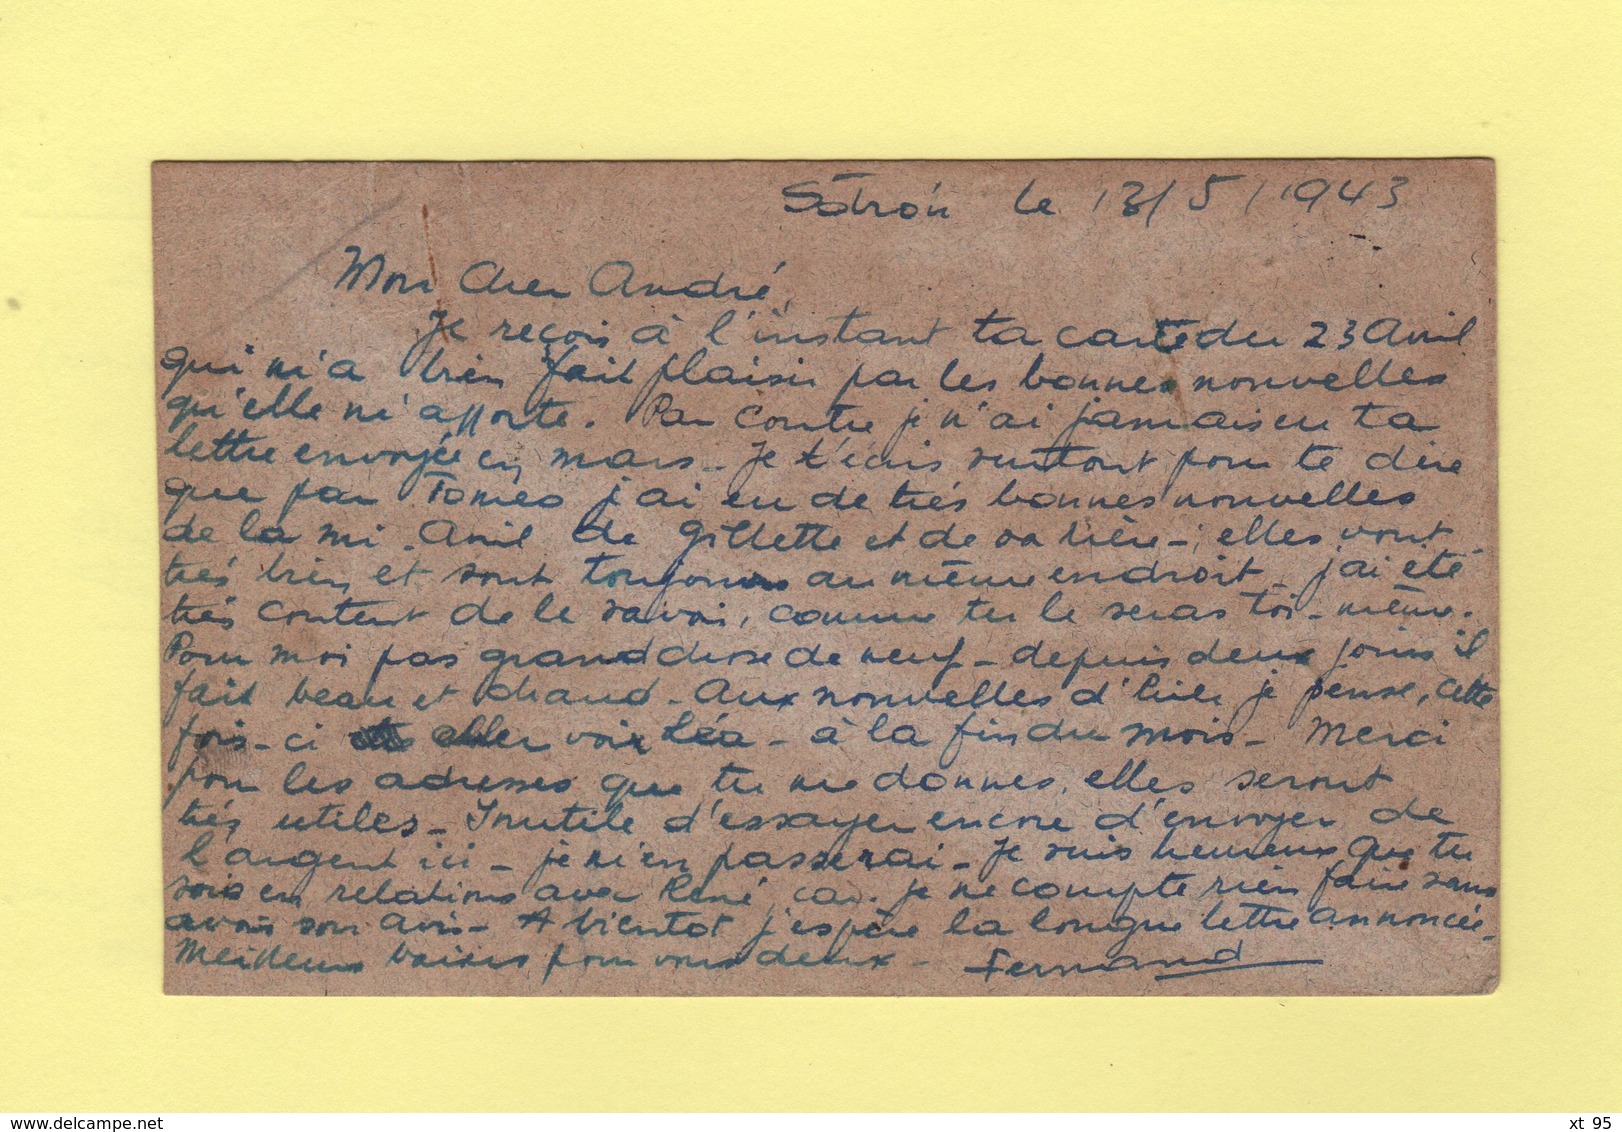 Sátrón le 13/5/1943
Mon Cher André,
Je reçois à l'instant ta carte du 23 Avril
qui m'a bien fait plaisir par les bonnes nouvelles
qu'elle m'apporte. Par contre je n'ai jamais eu ta
lettre envoyée en mars - Je t'écris surtout pour te dire
que par Tomeo j'ai eu de très bonnes nouvelles
de la mi-Avril de Gillette et de sa mère - ; elles vont
très bien et sont toujours au même endroit - j'ai été
très content de le savoir, comme tu le seras toi-même.
Pour moi pas grand chose de neuf - depuis deux jours il
fait beau et chaud - Aux nouvelles d'hier, je pense, cette
fois-ci aller voir Léa - à la fin du mois - Merci
pour les adresses que tu me donnes, elles seront
très utiles - Inutile d'essayer encore d'envoyer de
l'argent ici - je m'en passerai - Je suis heureux que tu
sois en relations avec René, car je ne compte rien faire sans
avoir son avis - A bientot j'espère la longue lettre annoncée -
Meilleurs baisers pour vous deux - Fernand
xt 95
www.delcampe.net